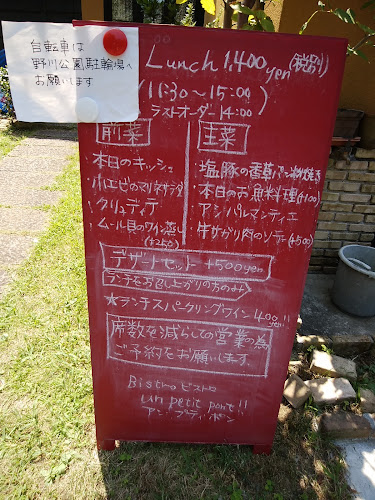 自転車は
野川公園駐輪場へ
お願いします
Lunch 1,400yen (税別)
(11:30～15:00)
ラストオーダー 14:00
前菜
・本日のキッシュ
・小エビのマリネサラダ
・クリュディテ
・ムール貝のワイン蒸し
(+250)
主菜
・塩豚の香草パン粉焼き
・本日のお魚料理(+100)
・アシパルマンティエ
・牛サガリ肉のソテー(+500)
デザートセット +500yen
ランチをお召し上がりの方のみ
★ランチスパークリングワイン 400yen!!
席数を減らしての営業の為
ご予約をお願いします。
Bistro ビストロ
un petit pont!!
アン・プティ・ポン